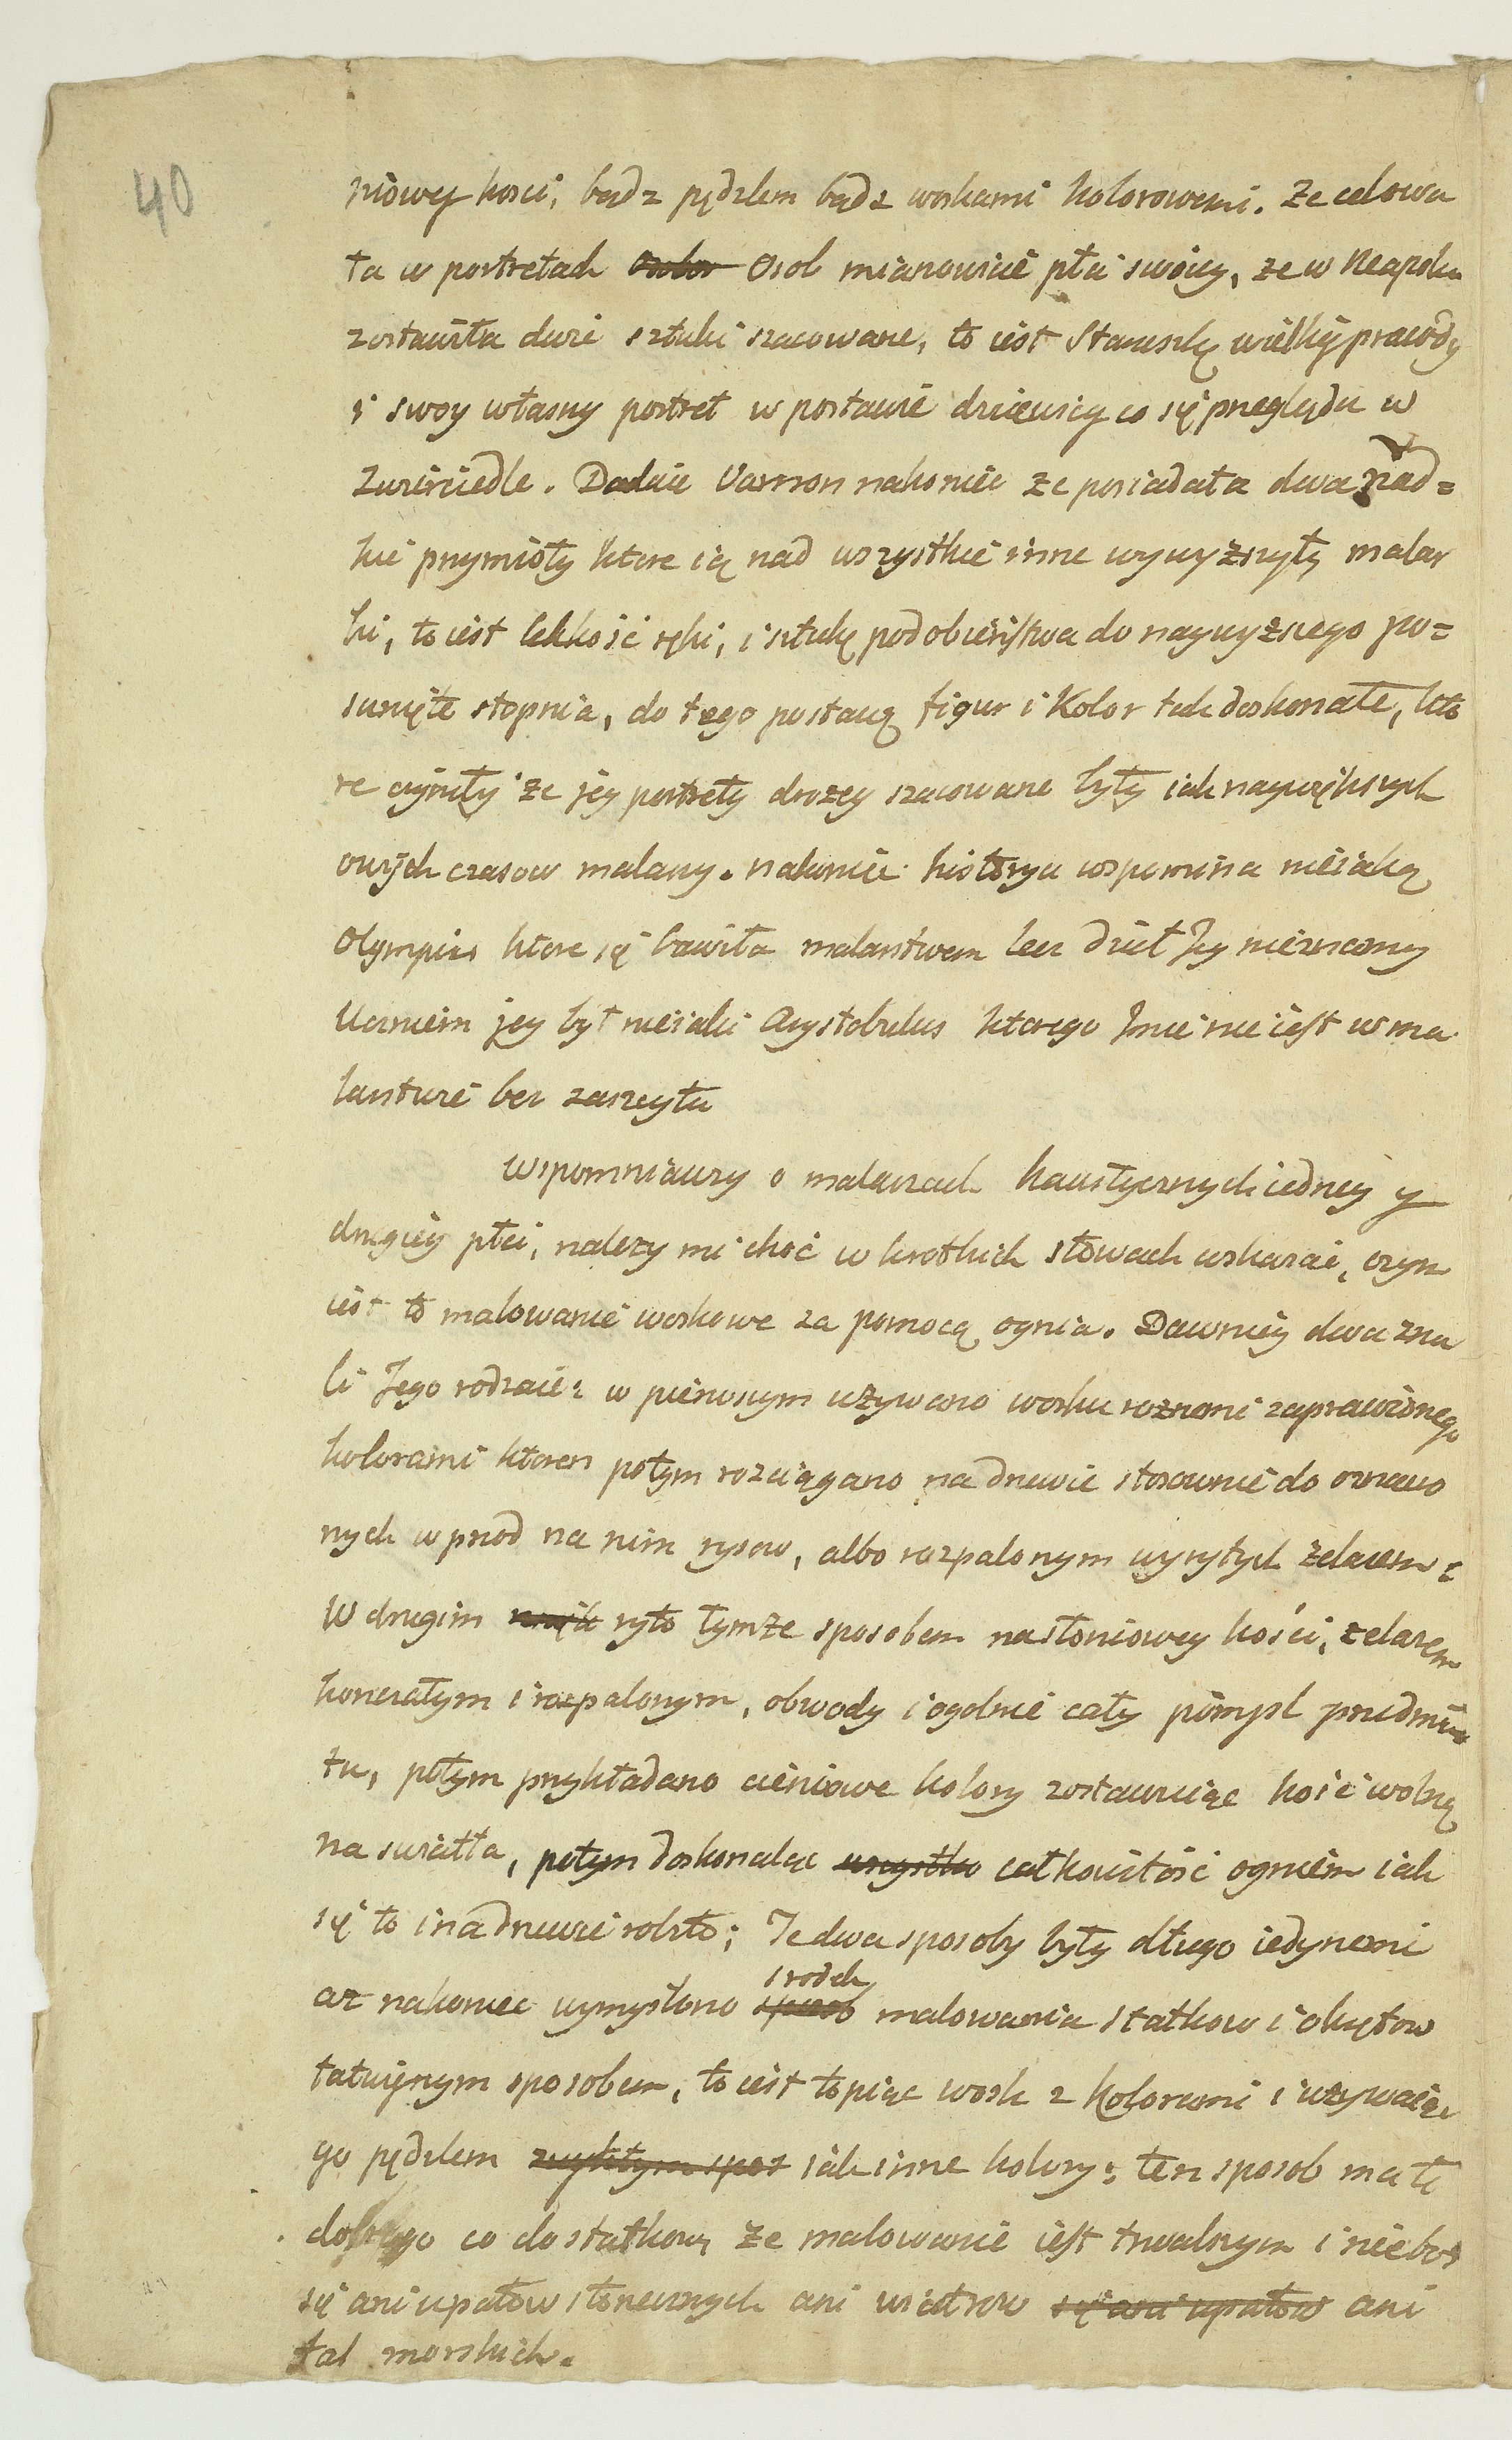 40
niowey kosci, bądz pędzlem bądz woskami kolorowemi. Ze celowa
ła w portretach Osobow Osob mianowicie płci swoiey, ze w Neapolu
zostawiła dwie sztuki szacowane, to iest Staruszkę wielkiey prawdy
i swoy własny portret w postawie dziewicy co się przegląda w
zwierciedle. Dodaie Varron nakoniec ze posiadała dwa rzad=
kie przymioty ktore ią nad wszystkie inne wywyższyły malar
ki, to iest lekkość ręki, i sztukę podobieństwa do naywyzszego po=
sunięte stopnia, do tego postawę figur i Kolor tak doskonałe, kto
re czyniły ze jey portrety drozey szacowane były iak naywiększych
owych czasow malarzy. nakoniec historya wspomina nieiaką
Olympias ktora się bawiła malarstwem lecz dzieł Jey nieznamy
Uczniem jey był nieiaki Arystobulus ktorego Jmie nie iest w ma
larstwie bez zaszczytu
Wspomniawszy o malarzach kaustycznych iedney y
drugiey płci, nalezy mi choć w krotkich słowach wskazać, czym
iest to malowanie woskowe za pomocą ognia. Dawniey dwa zna
li Jego rodzaie: w pierwszym używano wosku roznemi zaprawionego
kolorami ktoren potym rozciągano na drzewie stosownie do oznaczo
nych w przod na nim rysow, albo rozpalonym wyrytych zelazem:
W drugim ryto tymże sposobem na słoniowey kości, zelazem
konczatym i rozpalonym, obwody i ogolnie cały pomysł przedmio
tu, potym przykładano cieniowe kolory zostawuiąc kość wolną
na swiatła, potym doskonaląc wszystko całkowitość ogniem iak
się to i na drzewie robiło; Te dwa sposoby były długo iedynemi
az nakoniec wymyślono sposob srodek malowania statkow i okrętow
łatwieyszym sposobem, to iest topiąc wosk z kolorami i uzywaiąc
go pędzlem zwykłym spos iak inne kolory: ten sposob ma to
dobrego co do statkow, ze malowanie iest trwalszym i nieboi
się ani upałow słonecznych ani wiatrow się ani upałow ani
fal morskich.